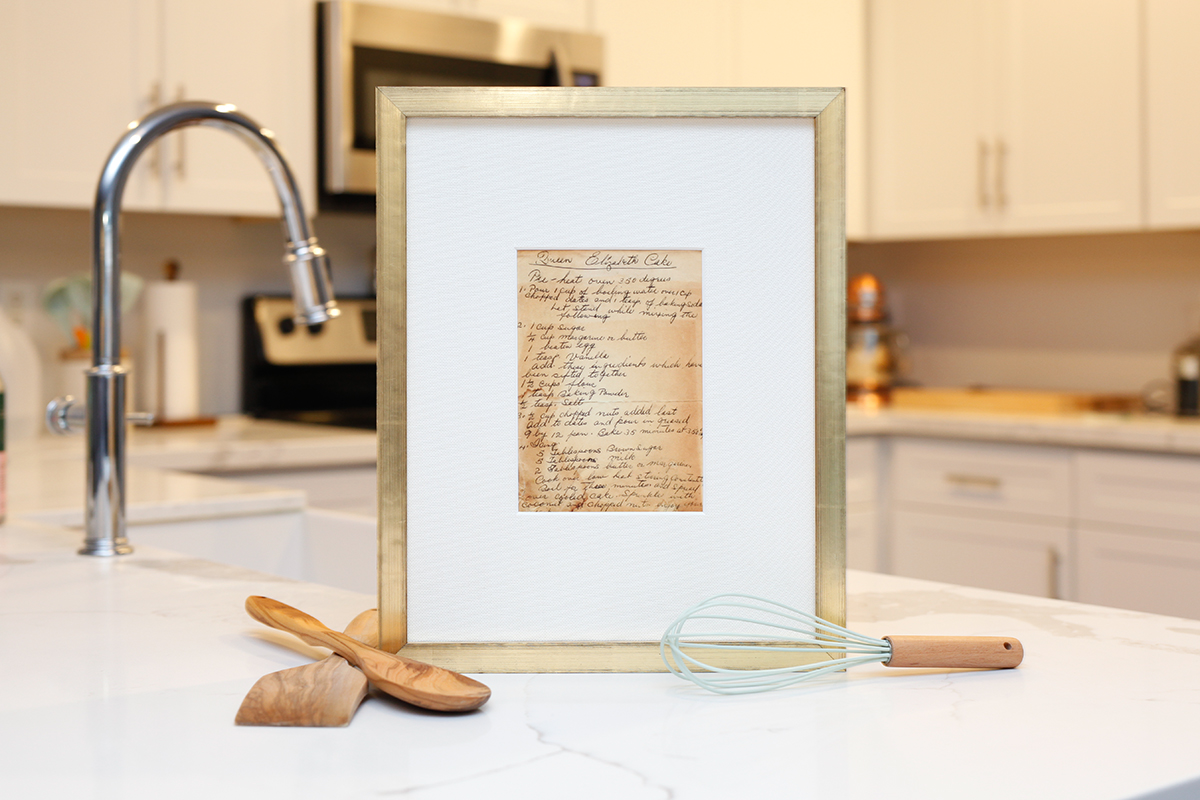 Queen Elizabeth Cake
Pre-heat oven 350 degrees
1. Pour 1 cup of boiling water over 1 cup
chopped dates and 1 teasp of baking soda
Let stand while mixing the
following
2. 1 cup sugar
¼ cup margarine or butter
1 beaten egg
1 teasp Vanilla
add these ingredients which have
been sifted together
1½ cups flour
1 teasp Baking Powder
½ teasp. Salt
3. ½ cup chopped nuts added last
Add to dates and pour in greased
9 by 12 pan. Bake 35 minutes at 350
4. Icing
5 Tablespoons Brown Sugar
5 Tablespoons Milk
2 Tablespoons butter or margarine
Cook on low heat stirring constant
Boil for three minutes and spread
over cooled cake. Sprinkle with
Coconut and chopped nuts enjoy